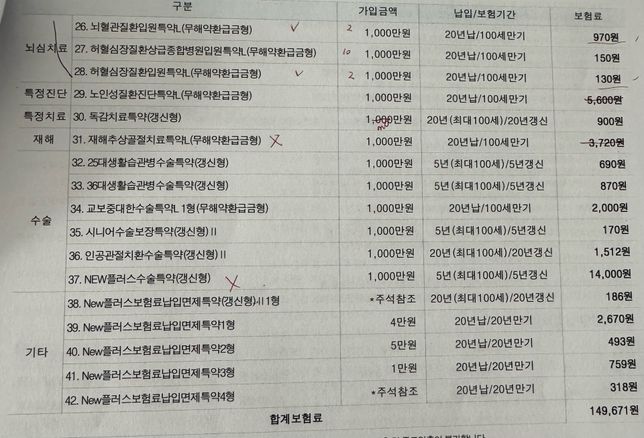 구분 가입금액 납입/보험기간 보험료
뇌심치료 26. 뇌혈관질환입원특약L(무해약환급금형) 2 1,000만원 20년납/100세만기 970원
27. 허혈심장질환상급종합병원입원특약L(무해약환급금형) 10 1,000만원 20년납/100세만기 150원
28. 허혈심장질환입원특약L(무해약환급금형) 2 1,000만원 20년납/100세만기 130원
특정진단 29. 노인성질환진단특약L(무해약환급금형) 1,000만원 20년납/100세만기 5,600원
특정치료 30. 독감치료특약(갱신형) 1,000만원 20년(최대100세)/20년갱신 900원
재해 31. 재해추상골절치료특약L(무해약환급금형) 1,000만원 20년납/100세만기 3,720원
수술 32. 25대생활습관병수술특약(갱신형) 1,000만원 5년(최대100세)/5년갱신 690원
33. 36대생활습관병수술특약(갱신형) 1,000만원 5년(최대100세)/5년갱신 870원
34. 교보중대한수술특약L 1형(무해약환급금형) 1,000만원 20년납/100세만기 2,000원
35. 시니어수술보장특약(갱신형)Ⅱ 1,000만원 5년(최대100세)/5년갱신 170원
36. 인공관절치환수술특약(갱신형)Ⅱ 1,000만원 20년(최대100세)/20년갱신 1,512원
37. NEW플러스수술특약(갱신형) 1,000만원 5년(최대100세)/5년갱신 14,000원
기타 38. New플러스보험료납입면제특약(갱신형)Ⅱ 1형 *주석참조 20년(최대100세)/20년갱신 186원
39. New플러스보험료납입면제특약1형 4만원 20년납/20년만기 2,670원
40. New플러스보험료납입면제특약2형 5만원 20년납/20년만기 493원
41. New플러스보험료납입면제특약3형 1만원 20년납/20년만기 759원
42. New플러스보험료납입면제특약4형 *주석참조 20년납/20년만기 318원
합계보험료 149,671원